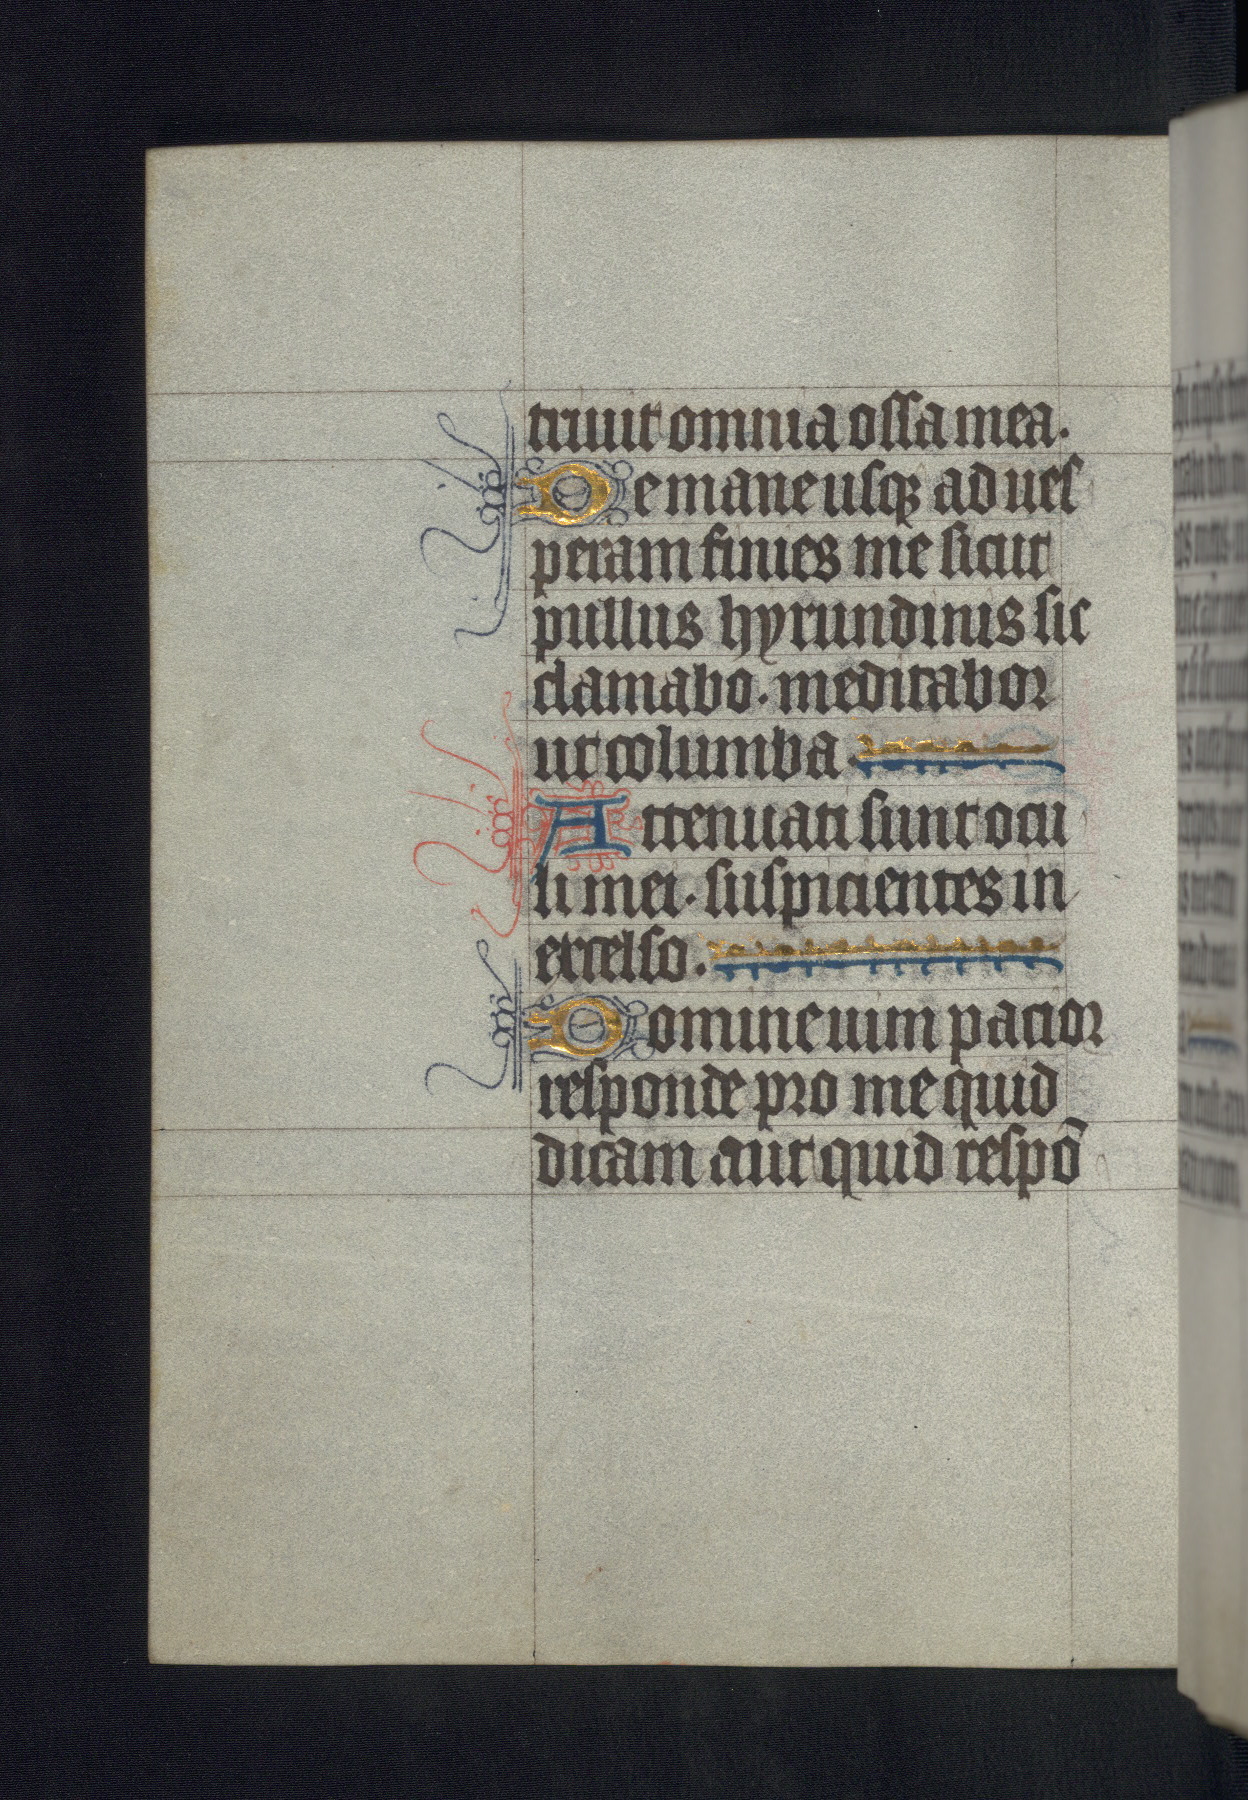 triuit omnia ossa mea.
De mane usqꝫ ad ues
peram finies me sicut
pullus hyrundinis sic
clamabo. meditabor
ut columba.
Attenuati sunt ocu
li mei. suspicientes in
excelso.
Domine uim pacior
responde pro me quid
dicam aut quid respō